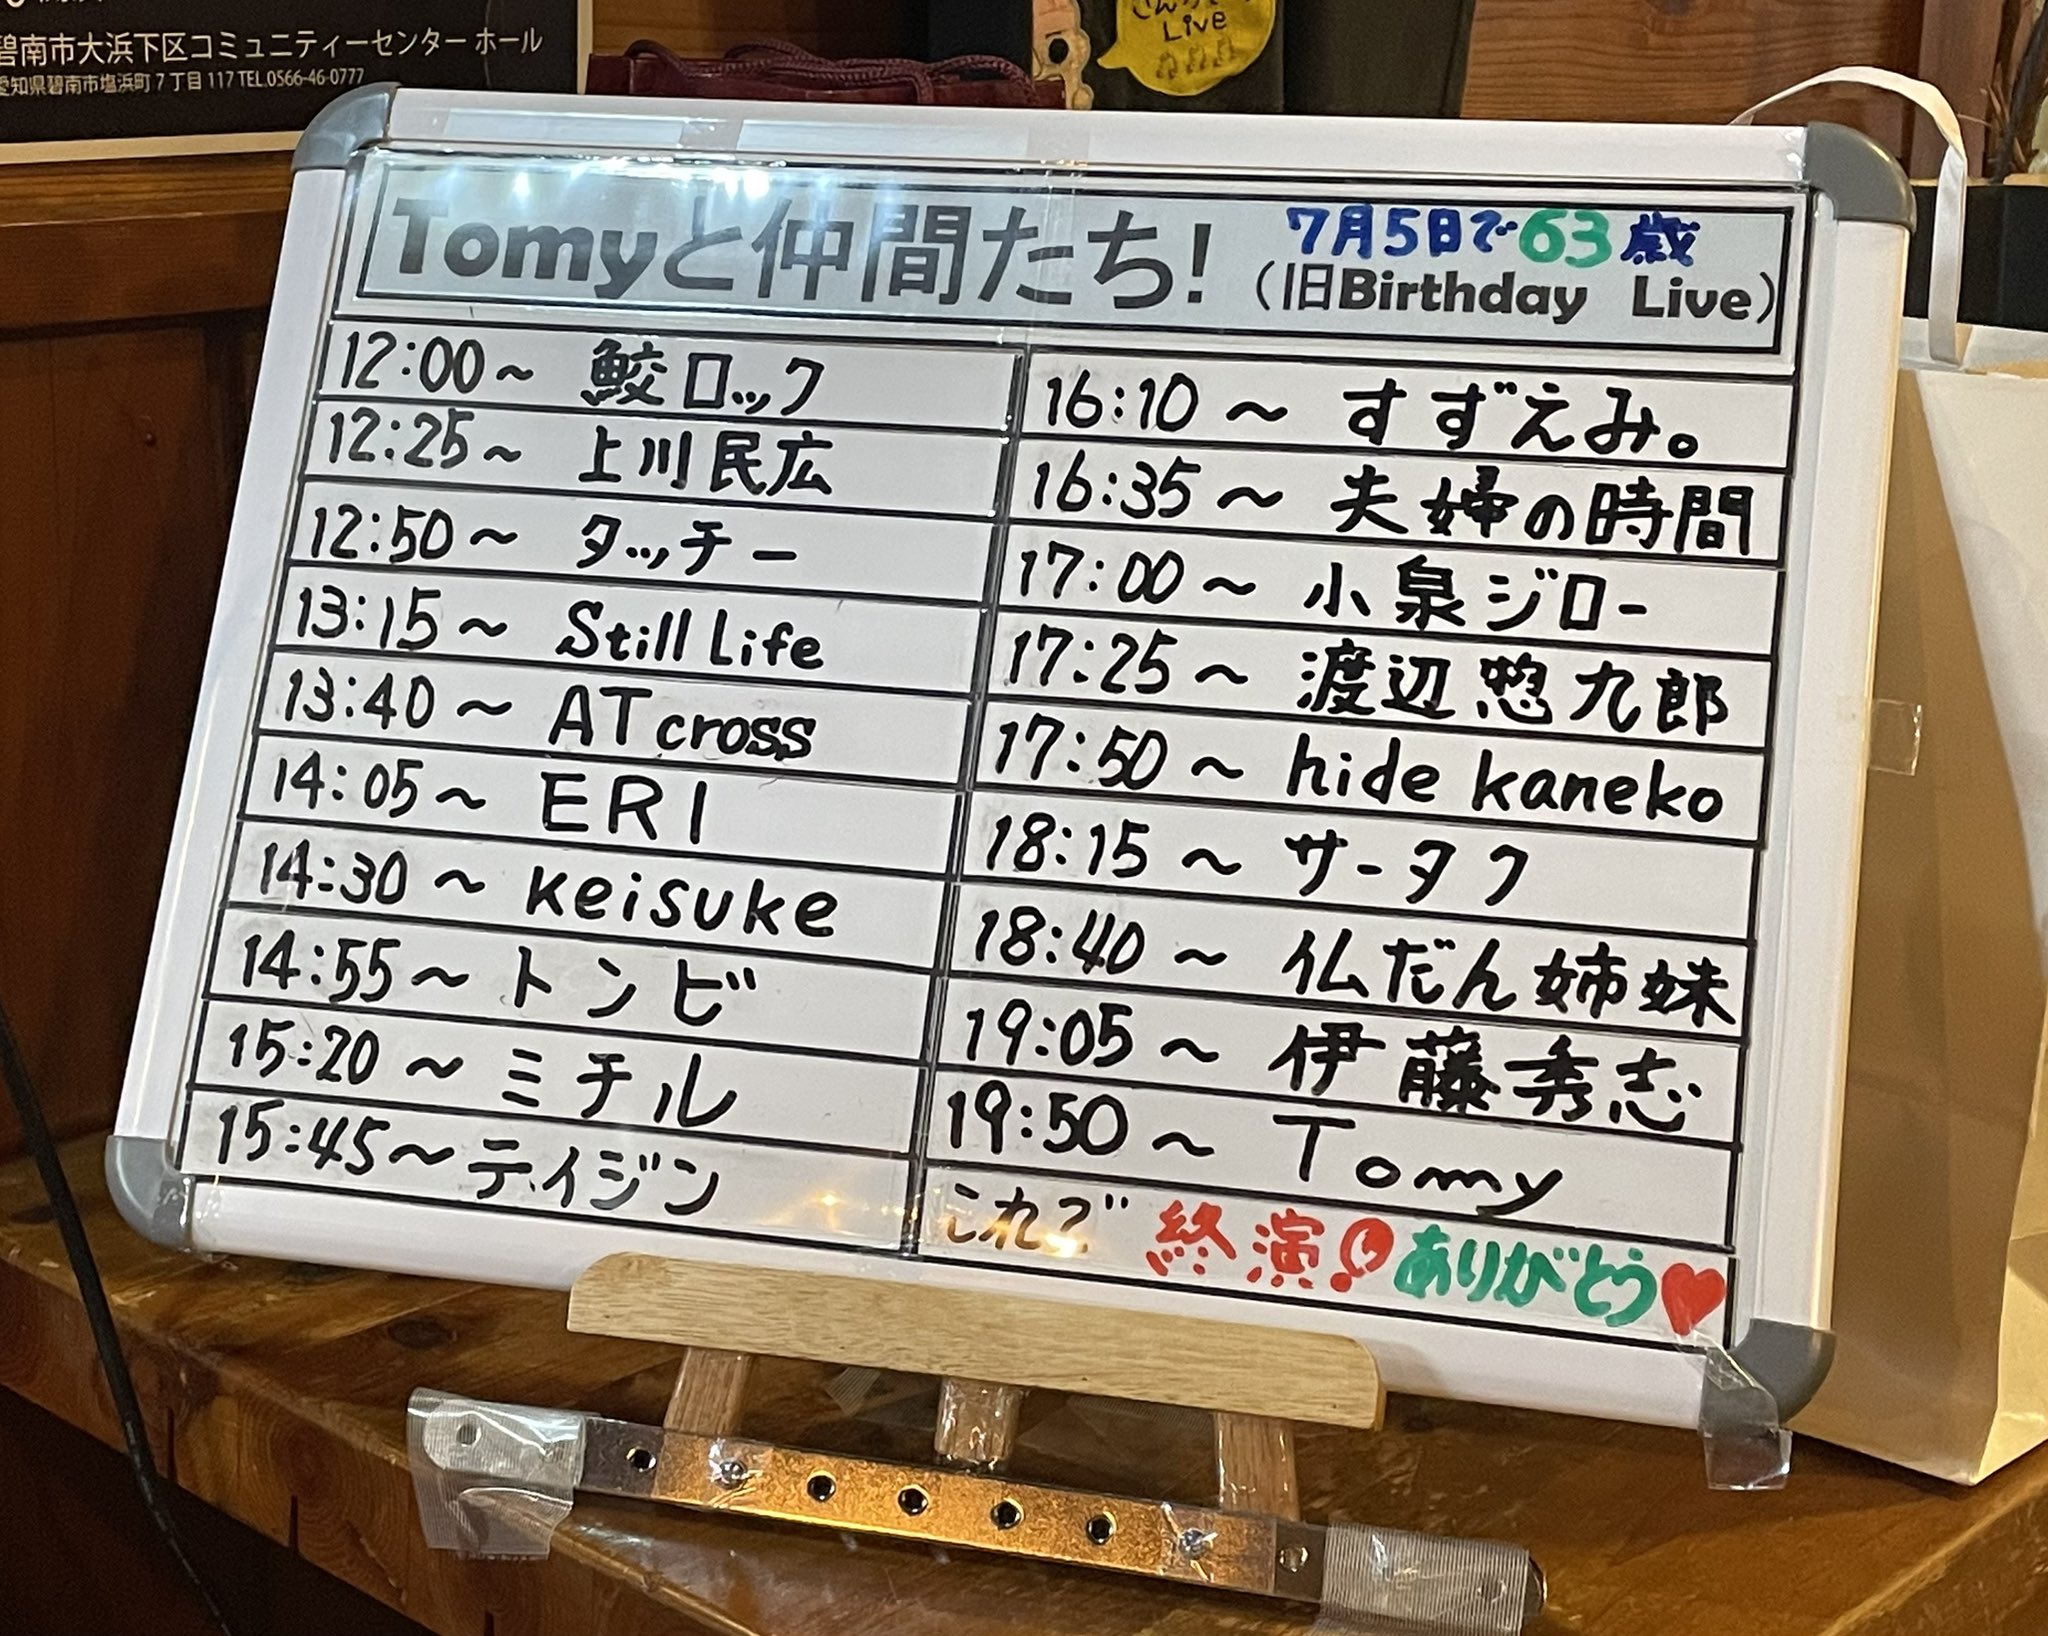 碧南市大浜下区コミュニティーセンター ホール
愛知県碧南市塩浜町7丁目117 TEL.0566-46-0777
Live
Tomyと仲間たち!
7月5日で63歳
(旧Birthday Live)
12:00~ 鮫ロック
12:25~ 上川民広
12:50~ タッチー
13:15~ Still Life
13:40~ ATcross
14:05~ ERI
14:30~ keisuke
14:55~ トンビ
15:20~ ミチル
15:45~ テイジン
16:10~ すずえみ。
16:35~ 夫婦の時間
17:00~ 小泉ジロー
17:25~ 渡辺惣九郎
17:50~ hide kaneko
18:15~ サータク
18:40~ 仏だん姉妹
19:05~ 伊藤秀志
19:50~ Tomy
これで 終演! ありがとう♥